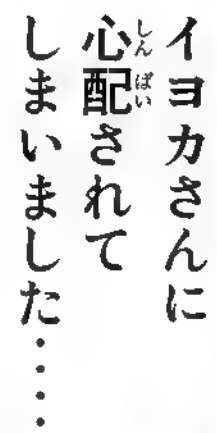 イヨカさんに
心配されて
しまいました・・・・